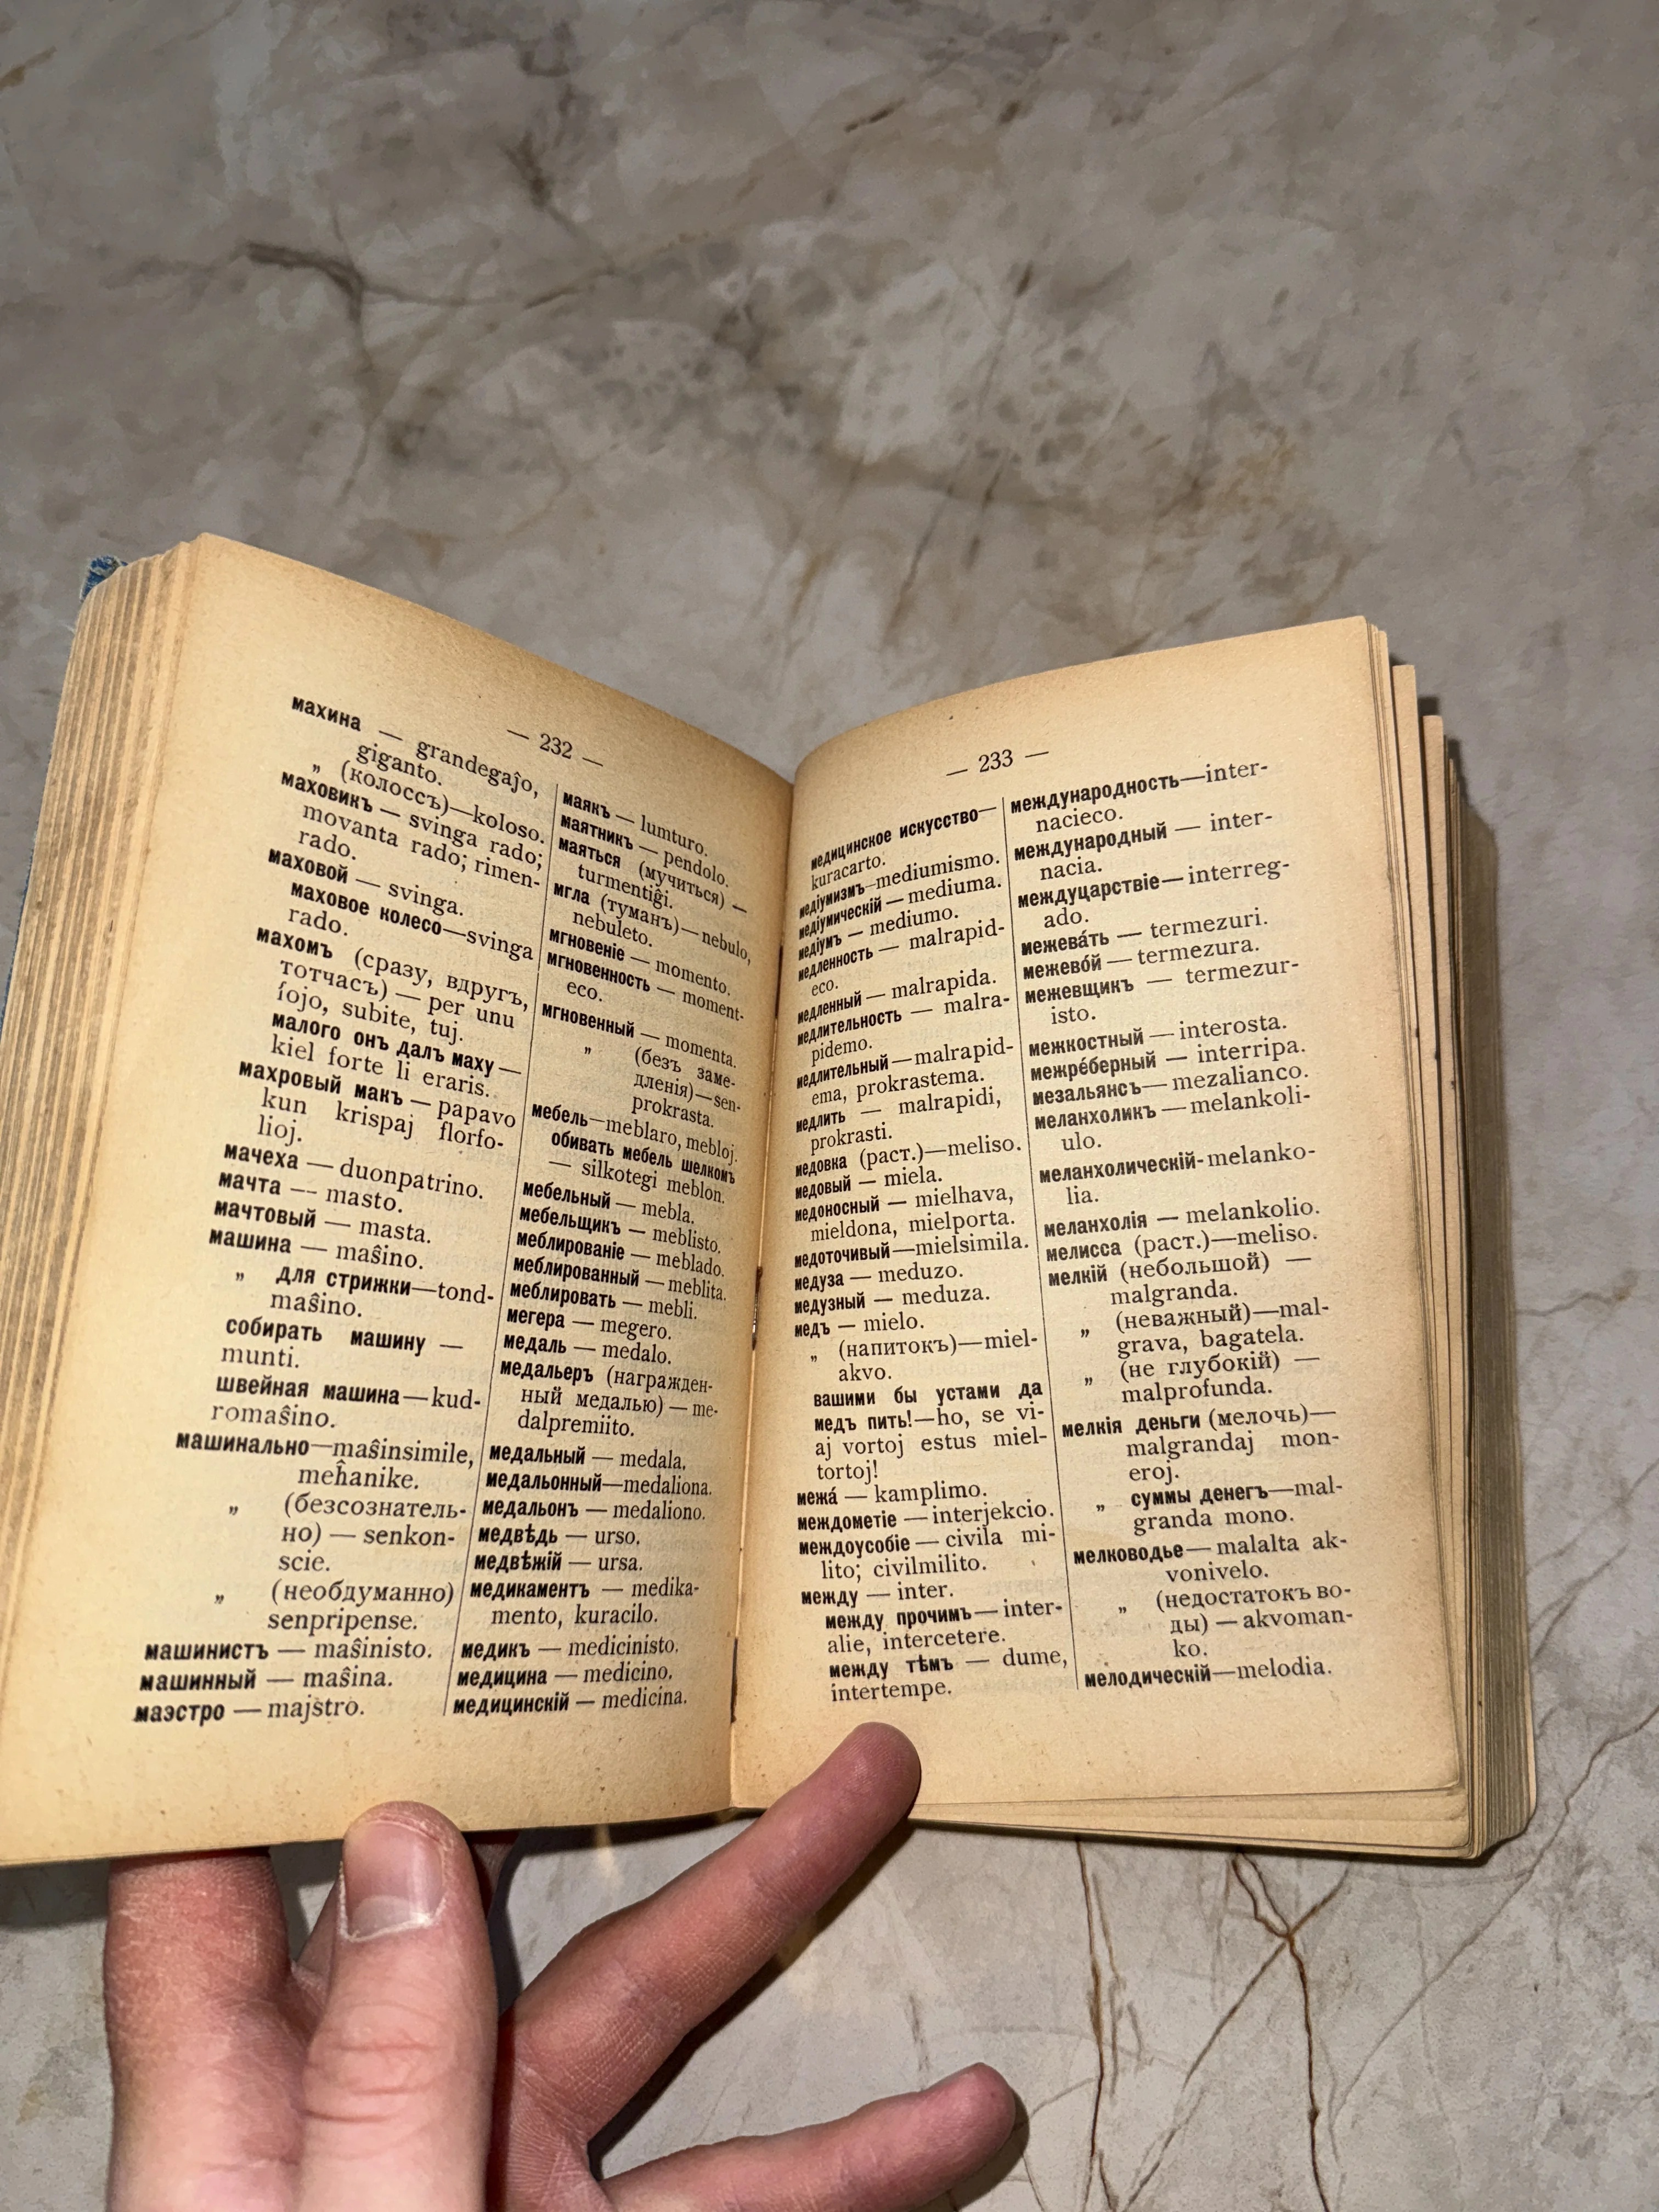 — 232 —
махина — grandegaĵo,
giganto.
„ (колоссъ)—koloso.
маховикъ — svinga rado;
movanta rado; rimen-
rado.
маховой — svinga.
маховое колесо—svinga
rado.
махомъ (сразу, вдругъ,
тотчасъ) — per unu
fojo, subite, tuj.
малого онъ далъ маху —
kiel forte li eraris.
махровый макъ — papavo
kun krispaj florfo-
lioj.
мачеха — duonpatrino.
мачта — masto.
мачтовый — masta.
машина — maŝino.
„ для стрижки—tond-
maŝino.
собирать машину —
munti.
швейная машина—kud-
romaŝino.
машинально—maŝinsimile,
meĥanike.
„ (безсознатель-
но) — senkon-
scie.
„ (необдуманно)
senpripense.
машинистъ — maŝinisto.
машинный — maŝina.
маэстро — majstro.
маякъ — lumturo.
маятникъ — pendolo.
маяться (мучиться) —
turmentiĝi.
мгла (туманъ)—nebulo,
nebuleto.
мгновеніе — momento.
мгновенность — moment-
eco.
мгновенный — momenta.
„ (безъ заме-
дленія)—sen-
prokrasta.
мебель—meblaro, mebloj.
обивать мебель шелкомъ
— silkotegi meblon.
мебельный — mebla.
мебельщикъ — meblisto.
меблированіе — meblado.
меблированный — meblita.
меблировать — mebli.
мегера — megero.
медаль — medalo.
медальеръ (награжден-
ный медалью) — me-
dalpremiito.
медальный — medala.
медальонный—medaliona.
медальонъ — medaliono.
медвѣдь — urso.
медвѣжій — ursa.
медикаментъ — medika-
mento, kuracilo.
медикъ — medicinisto.
медицина — medicino.
медицинскій — medicina.
— 233 —
медицинское искусство—
kuracarto.
медіумизмъ—mediumismo.
медіумическій — mediuma.
медіумъ — mediumo.
медленность — malrapid-
eco.
медленный — malrapida.
медлительность — malra-
pidemo.
медлительный—malrapid-
ema, prokrastema.
медлить — malrapidi,
prokrasti.
медовка (раст.)—meliso.
медовый — miela.
медоносный — mielhava,
mieldona, mielporta.
медоточивый—mielsimila.
медуза — meduzo.
медузный — meduza.
медъ — mielo.
„ (напитокъ)—miel-
akvo.
вашими бы устами да
медъ пить!—ho, se vi-
aj vortoj estus miel-
tortoj!
межа́ — kamplimo.
междометіе — interjekcio.
междоусобіе — civila mi-
lito; civilmilito.
между — inter.
между прочимъ—inter-
alie, intercetere.
между тѣмъ — dume,
intertempe.
международность—inter-
nacieco.
международный — inter-
nacia.
междуцарствіе—interreg-
ado.
межева́ть — termezuri.
межево́й — termezura.
межевщикъ — termezur-
isto.
межкостный — interosta.
межре́берный — interripa.
мезальянсъ—mezalianco.
меланхоликъ — melankoli-
ulo.
меланхолическій-melanko-
lia.
меланхолія — melankolio.
мелисса (раст.)—meliso.
мелкій (небольшой) —
malgranda.
„ (неважный)—mal-
grava, bagatela.
„ (не глубокій) —
malprofunda.
мелкія деньги (мелочь)—
malgrandaj mon-
eroj.
„ суммы денегъ—mal-
granda mono.
мелководье— malalta ak-
vonivelo.
„ (недостатокъ во-
ды) — akvoman-
ko.
мелодическій—melodia.